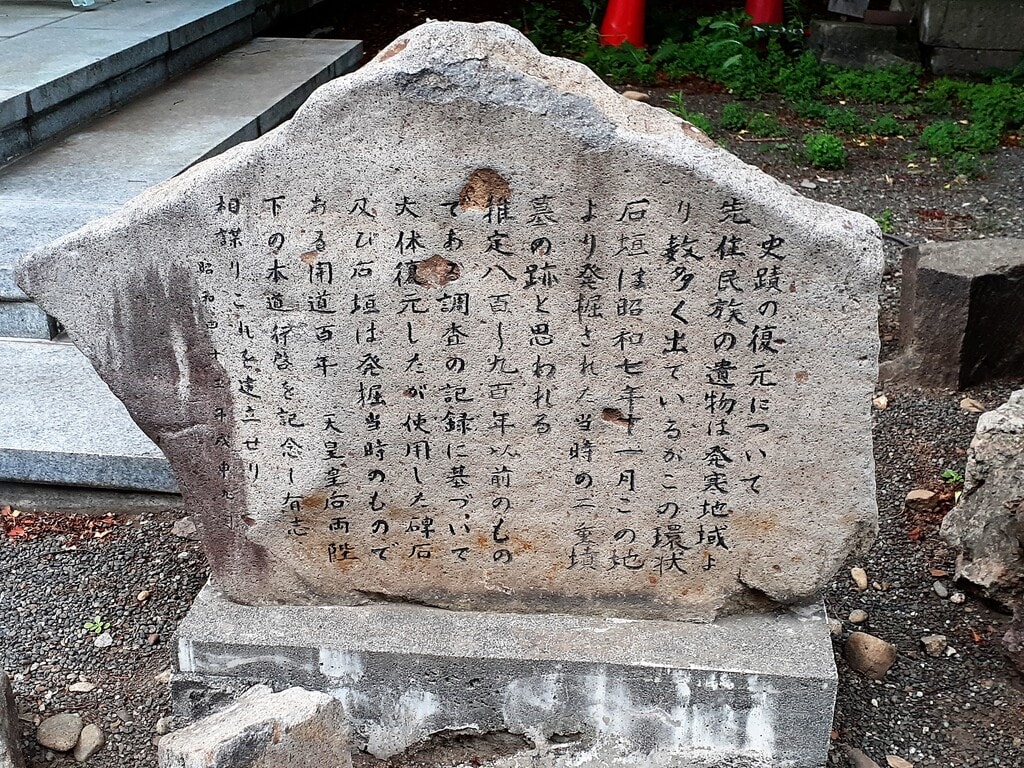 史蹟の復元について
先住民族の遺物は発寒地域よ
り数多く出ているがこの環状
石垣は昭和七年十一月この地
より発掘された当時の二重墳
墓の跡と思われる
推定八百〜九百年以前のもの
である調査の記録に基づいて
大体復元したが使用した碑石
及び石垣は発掘当時のもので
ある開道百年 天皇皇后両陛
下の本道行啓を記念し有志
相謀りこれを建立せり
昭和四十三年